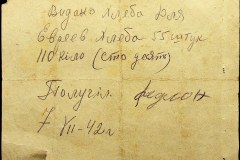 Выдано хлеба для
Евреев хлеба 55 штук
110 кило (сто десять)
Получил
7 VII-42г